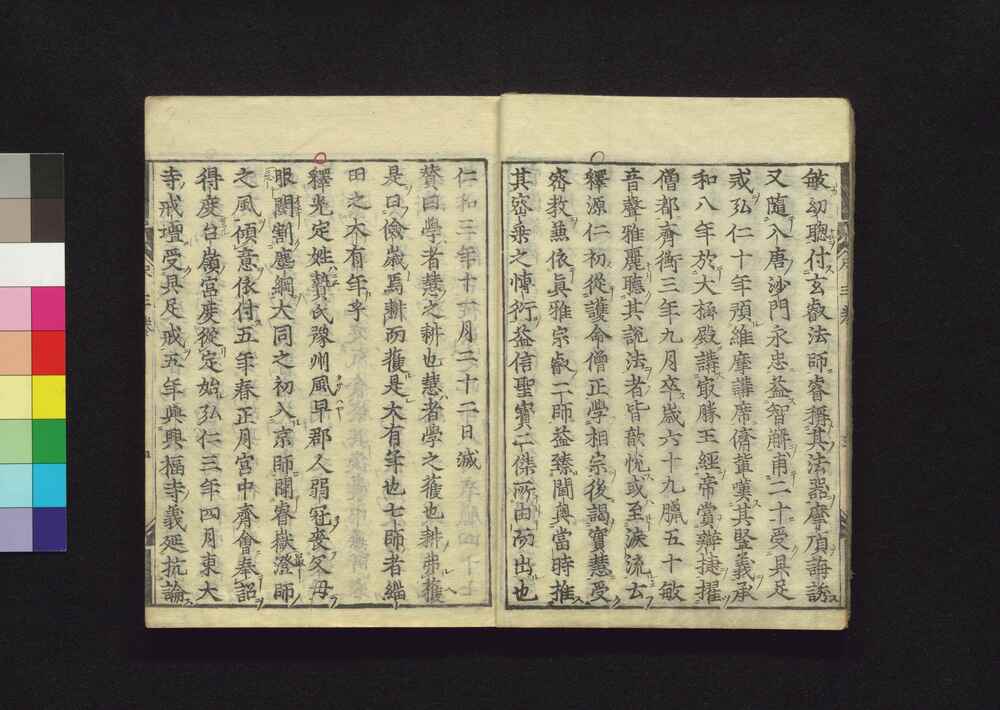 敏幼聰付玄叡法師睿稱其法器摩頂誨誘
又隨入唐沙門永忠益智解甫二十受具足
戒弘仁十年預維摩講席儕輩嘆其竪義承
和八年於大極殿講最勝王經帝賞辯捷擢
僧都齊衡三年九月卒歲六十九臘五十敏
音聲雅麗聽其説法者皆歆悅或至淚流云
釋源仁初從護命僧正學相宗後謁實慧受
密教兼依眞雅宗叡二師益臻閫奧當時推
其密乘之愽衍益信聖寳二傑所由而出也
仁和三年十一月二十二日滅
賛曰學者慧之耕也慧者學之穫也耕弗穫
是曰儉歲焉耕而穫是大有年也七師者繼
田之大有年乎
釋光定姓贄氏豫州風早郡人弱冠喪父母
眼閲割塵網大同之初入京師聞睿嶽澄師
之風傾意依付五年春正月宮中齊會奉詔
得度台嶺宮度從定始弘仁三年四月東大
寺戒壇受具足戒五年興興福寺義延抗論